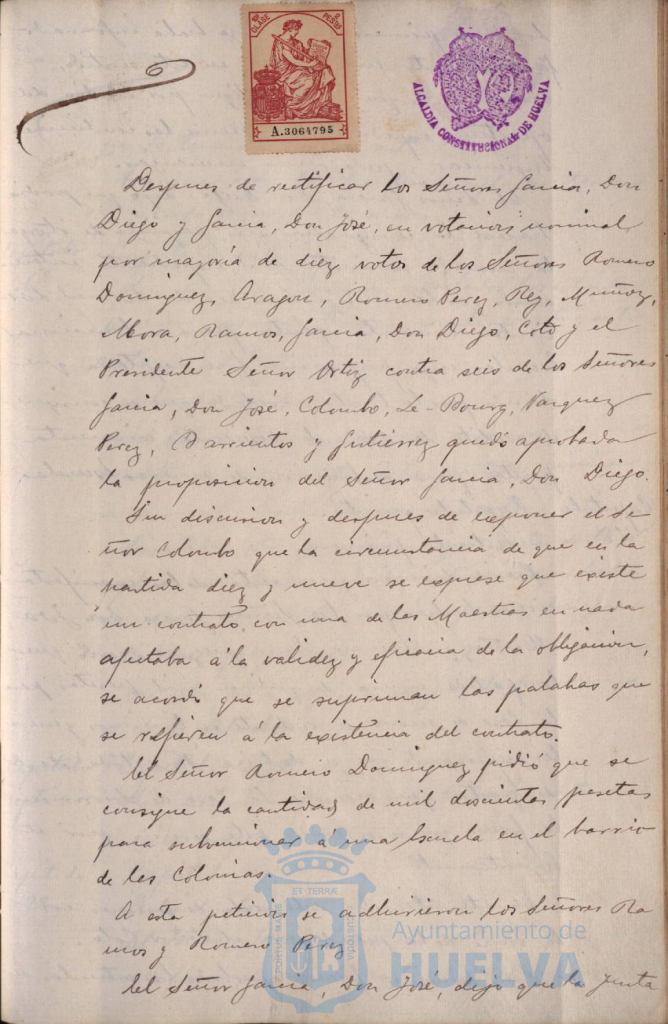 10ª CLASE
2 PESETAS
A.3064795
ALCALDIA CONSTITUCIONAL DE HUELVA
Despues de rectificar los Señores Garcia, Don
Diego y Garcia, Don José, en votacion nominal
por mayoría de diez votos de los Señores Romero
Dominguez, Aragon, Romero Perez, Rey, Muñoz,
Mora, Ramos, Garcia, Don Diego, Coto y el
Presidente Señor Ortiz contra seis de los Señores
Garcia, Don José, Colombo, Le-Bourg, Vazquez
Perez, Barrientos y Gutiérrez quedó aprobada
la proposicion del Señor Garcia, Don Diego.
Sin discusion y despues de exponer el Se
ñor Colombo que la circunstancia de que en la
partida diez y nueve se exprese que existe
un contrato con una de las Maestras en nada
afectaba á la validez y eficacia de la obligacion,
se acordó que se supriman las palabras que
se refieren á la existencia del contrato.
El Señor Romero Dominguez pidió que se
consigne la cantidad de mil doscientas pesetas
para subvencionar á una Escuela en el barrio
de las Colonias.
A esta peticion se adhirieron los Señores Ra
mos y Romero Perez
El Señor Garcia, Don José, dijo que la Junta
Ayuntamiento de
HUELVA